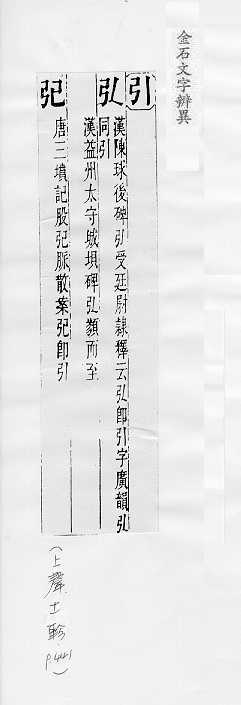 金石文字辨異
引
弘 漢陳球後碑引受廷尉隸釋云弘卽引字廣韻弘
同引
漢益州太守城垻碑弘類而至
弞 唐三墳記股弞脈散案弞卽引
(上聲十一軫 p.441)